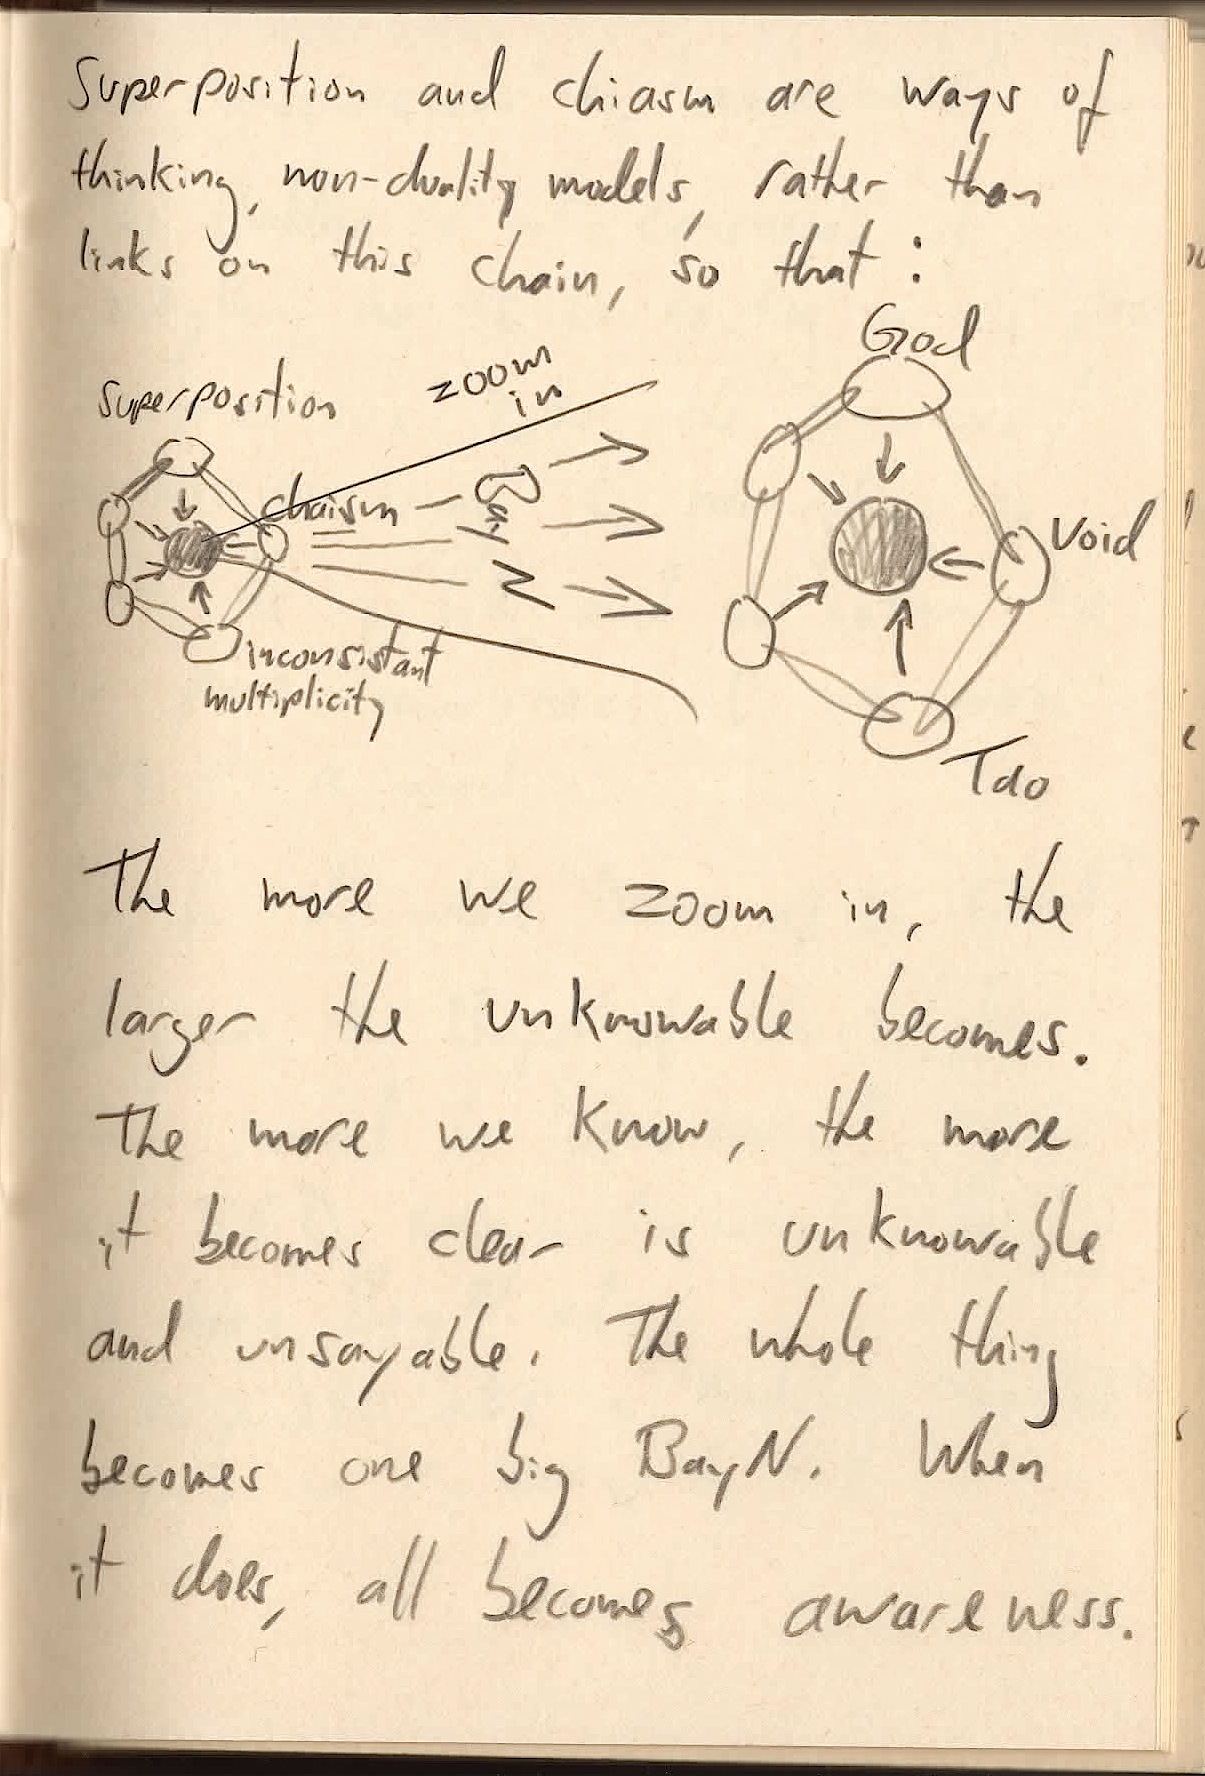 Superposition and chiasm are ways of
thinking, non-duality models, rather than
links on this chain, so that:
Superposition
zoom
in
chaism
Bay
N
inconsistant
multiplicity
God
Void
Tao
The more we zoom in, the
larger the unknowable becomes.
The more we know, the more
it becomes clear is unknowable
and unsayable. The whole thing
becomes one big BayN. When
it does, all becomes awareness.